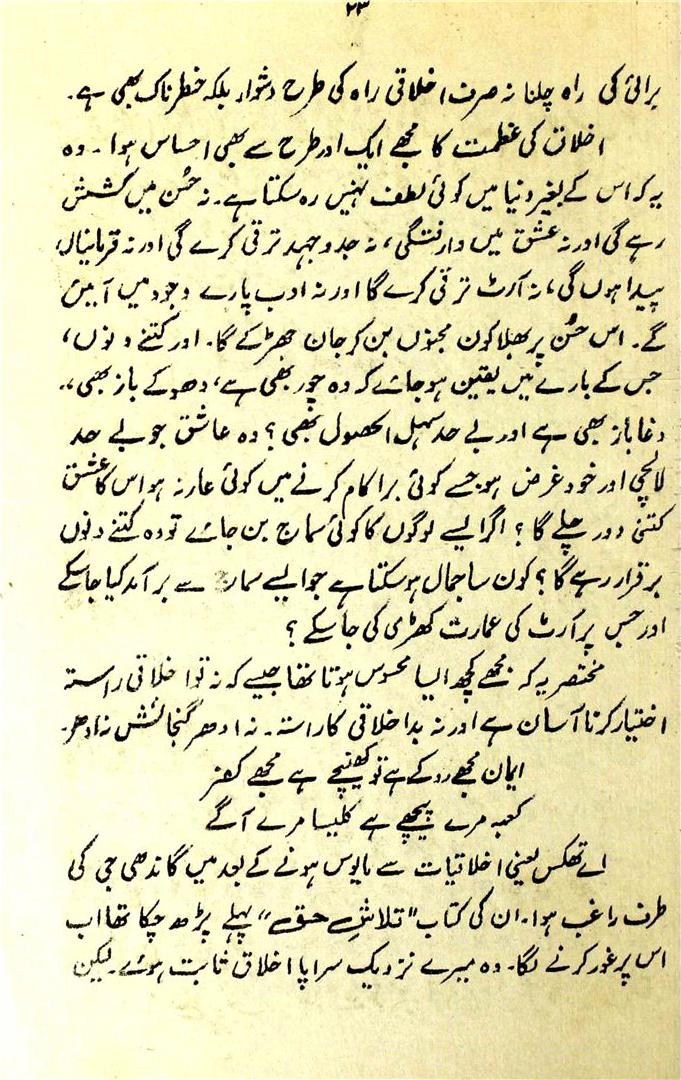 ۲۳
برائی کی راہ چلنا نہ صرف اخلاقی راہ کی طرح دشوار بلکہ خطرناک بھی ہے۔
اخلاق کی عظمت کا مجھے ایک اور طرح سے بھی احساس ہوا۔ وہ
یہ کہ اس کے بغیر دنیا میں کوئی لطف نہیں رہ سکتا ہے۔ نہ حُسن میں کشش
رہے گی اور نہ عشق میں وارفتگی، نہ جدوجہد ترقی کرے گی اور نہ قربانیاں
پیدا ہوں گی، نہ آرٹ ترقی کرے گا اور نہ ادب پارے وجود میں آئیں
گے۔ اس حُسن پر بھلا کون مجنوں بن کر جان چھڑکے گا۔ اور کتنے دنوں،
جس کے بارے میں یقین ہو جائے کہ وہ چور بھی ہے، دھوکے باز بھی،
دغا باز بھی ہے اور بے حد سہل الحصول بھی؟ وہ عاشق جو بے حد
لالچی اور خود غرض ہو جسے کوئی برا کام کرنے میں کوئی عار نہ ہو اس کا عشق
کتنی دور چلے گا؟ اگر ایسے لوگوں کا کوئی سماج بن جائے تو وہ کتنے دنوں
برقرار رہے گا؟ کون سا جمال ہو سکتا ہے جو ایسے سماج سے برآمد کیا جا سکے
اور جس پر آرٹ کی عمارت کھڑی کی جا سکے؟
مختصر یہ کہ مجھے کچھ ایسا محسوس ہوتا تھا جیسے کہ نہ تو اخلاقی راستہ
اختیار کرنا آسان ہے اور نہ بداخلاقی کا راستہ۔ نہ ادھر گنجائش نہ ادھر۔
ایمان مجھے روکے ہے تو کھینچے ہے مجھے کفر
کعبہ مرے پیچھے ہے کلیسا مرے آگے
اے تھکس یعنی اخلاقیات سے مایوس ہونے کے بعد میں گاندھی جی کی
طرف راغب ہوا۔ ان کی کتاب "تلاشِ حق" پہلے پڑھ چکا تھا اب
اس پر غور کرنے لگا۔ وہ میرے نزدیک سراپا اخلاق ثابت ہوئے۔ لیکن